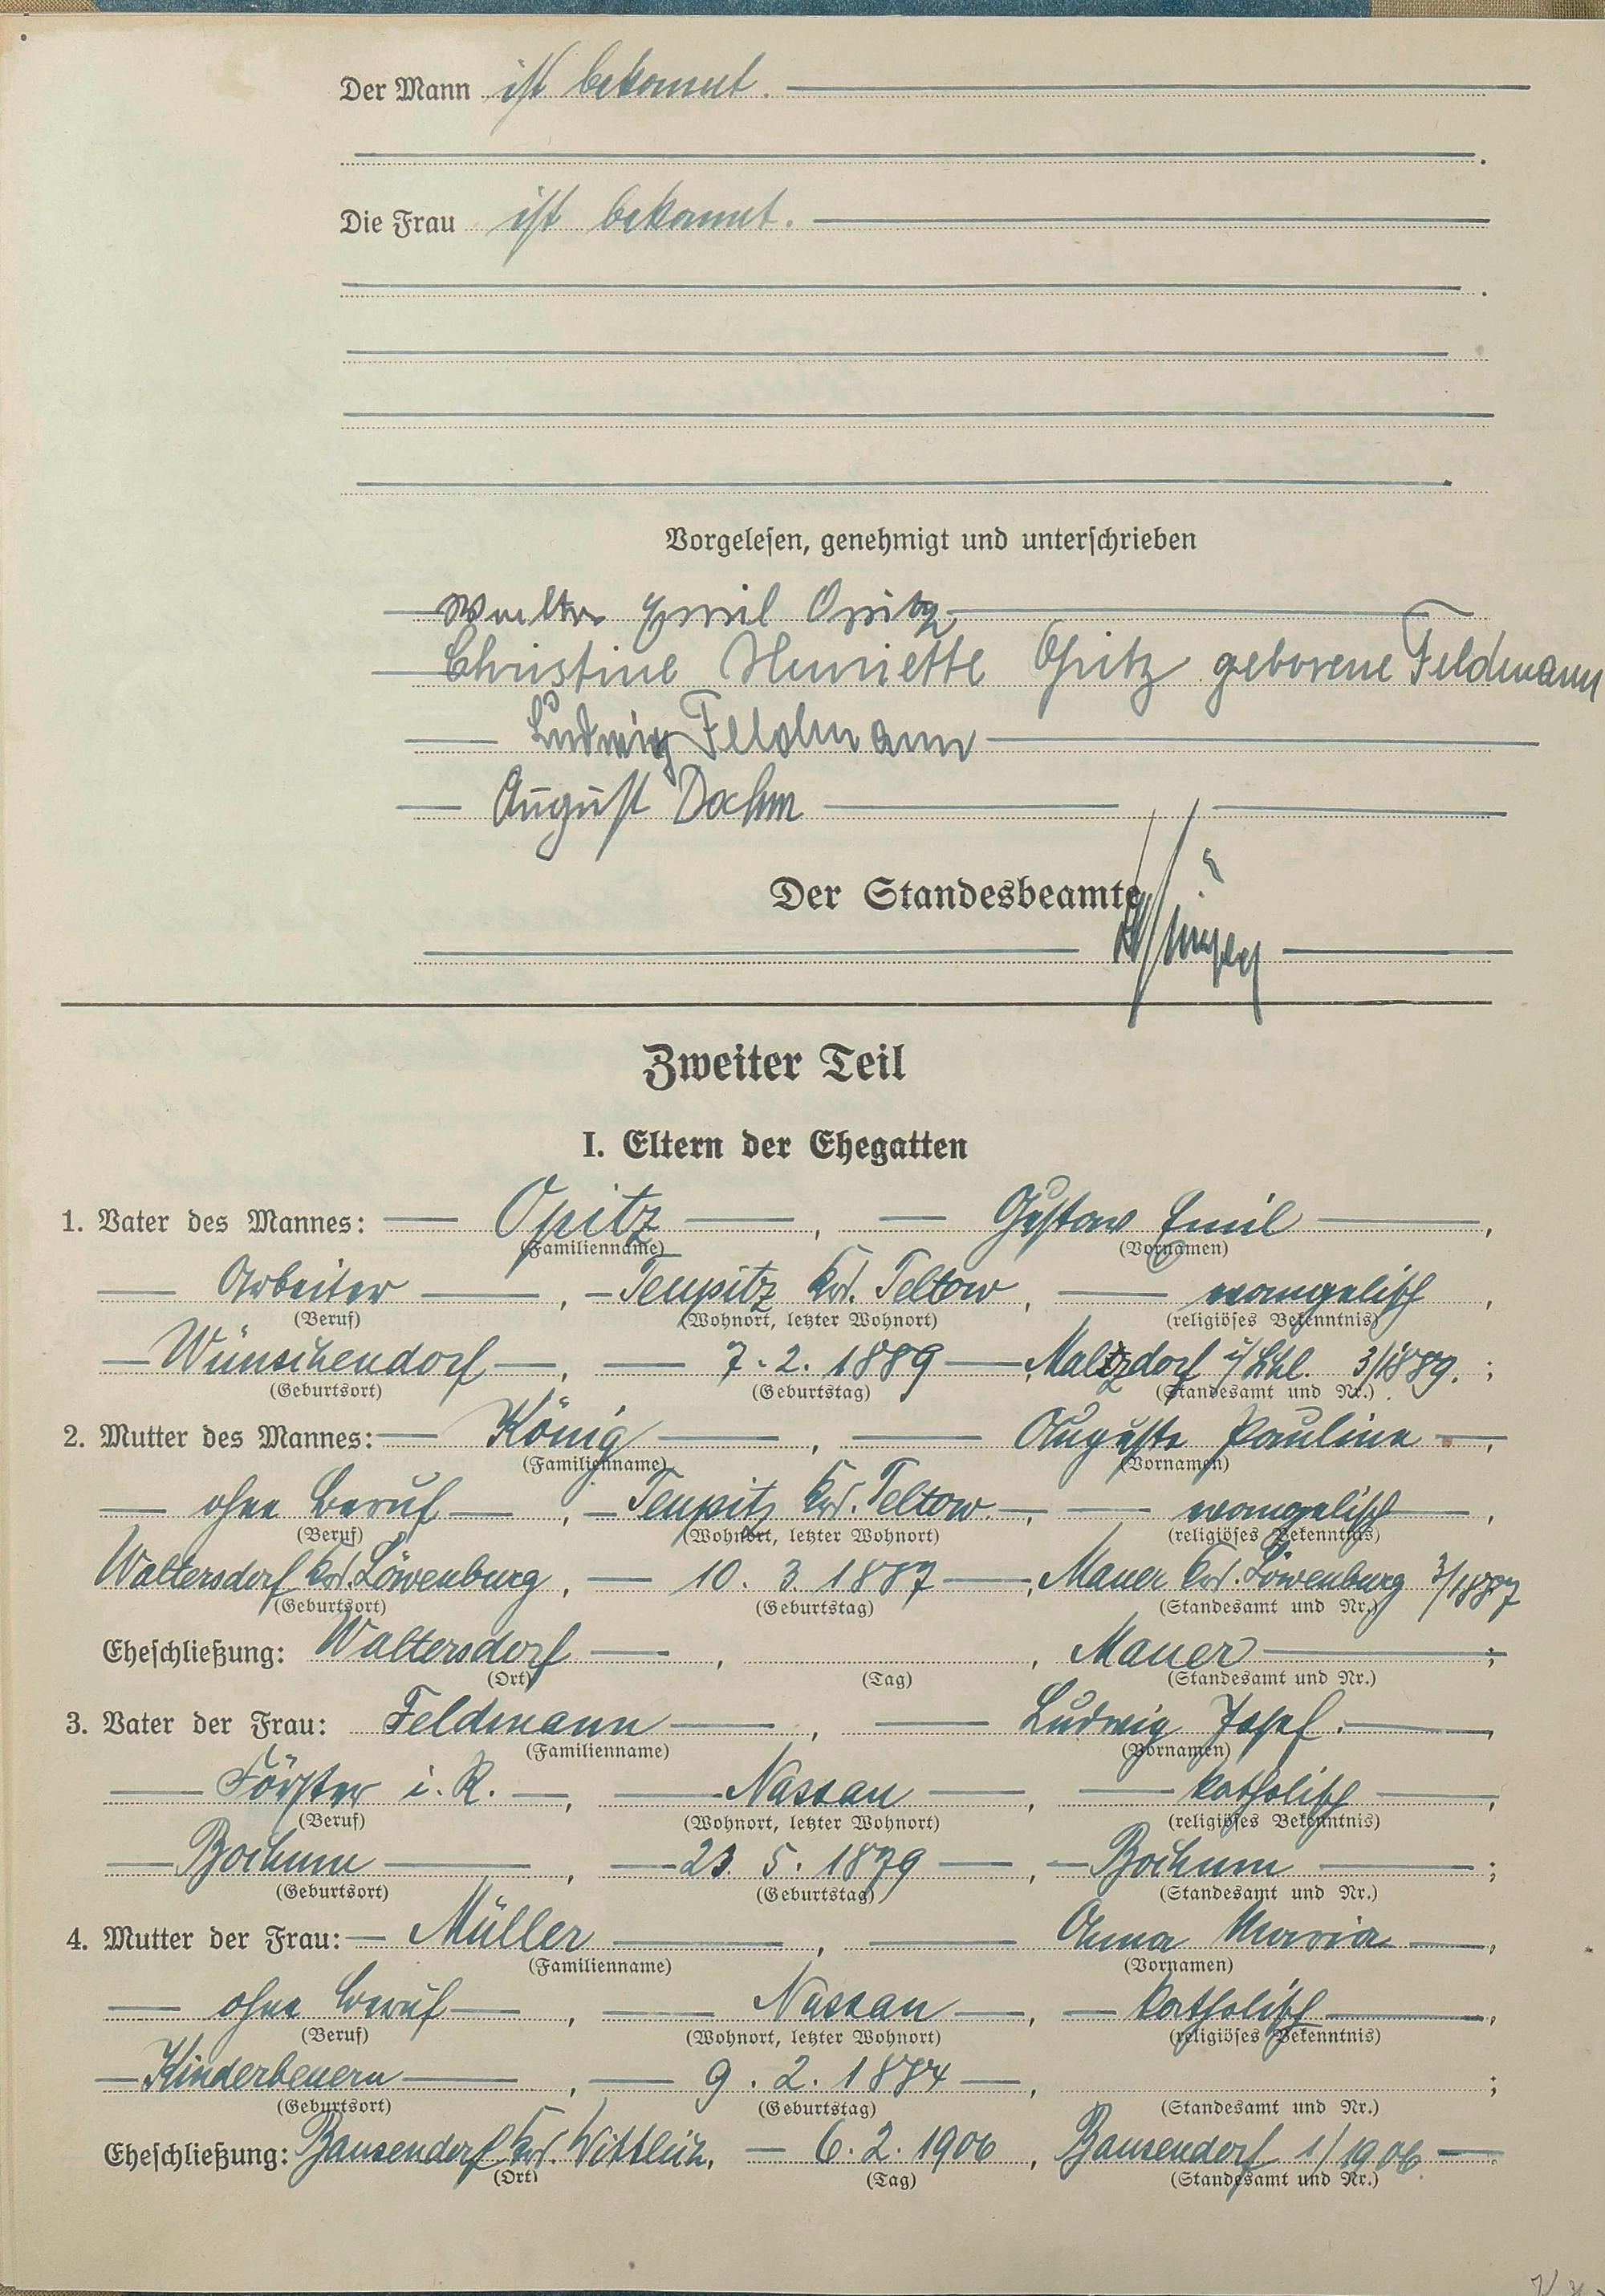 Der Mann ist bekannt.
Die Frau ist bekannt.
Vorgelesen, genehmigt und unterschrieben
Walter Emil Opitz
Christine Henriette Opitz geborene Feldmann
Ludwig Feldmann
August Dochm
Der Standesbeamte
Zweiter Teil
I. Eltern der Ehegatten
1. Vater des Mannes: Opitz, Gustav Emil,
(Familienname) (Vornamen)
Arbeiter, Teupitz Krs. Teltow, evangelisch,
(Beruf) (Wohnort, letzter Wohnort) (religiöses Bekenntnis)
Wünschendorf, 7. 2. 1889, Matzdorf 3/1889. ;
(Geburtsort) (Geburtstag) (Standesamt und Nr.)
2. Mutter des Mannes: König, Auguste Pauline,
(Familienname) (Vornamen)
ohne Beruf, Teupitz Krs. Teltow, evangelisch,
(Beruf) (Wohnort, letzter Wohnort) (religiöses Bekenntnis)
Waltersdorf Krs. Löwenburg, 10. 3. 1887, Mauer Krs. Löwenburg 3/1887
(Geburtsort) (Geburtstag) (Standesamt und Nr.)
Eheschließung: Waltersdorf, , Mauer ;
(Ort) (Tag) (Standesamt und Nr.)
3. Vater der Frau: Feldmann, Ludwig Josef.,
(Familienname) (Vornamen)
Förster i. R., Nassau, katholisch,
(Beruf) (Wohnort, letzter Wohnort) (religiöses Bekenntnis)
Bochum, 23. 5. 1879, Bochum ;
(Geburtsort) (Geburtstag) (Standesamt und Nr.)
4. Mutter der Frau: Müller, Anna Maria,
(Familienname) (Vornamen)
ohne Beruf, Nassau, katholisch,
(Beruf) (Wohnort, letzter Wohnort) (religiöses Bekenntnis)
Kinderbeuern, 9. 2. 1884, ;
(Geburtsort) (Geburtstag) (Standesamt und Nr.)
Eheschließung: Bausendorf Krs. Wittlich, 6. 2. 1906, Bausendorf 1/1906.
(Ort) (Tag) (Standesamt und Nr.)